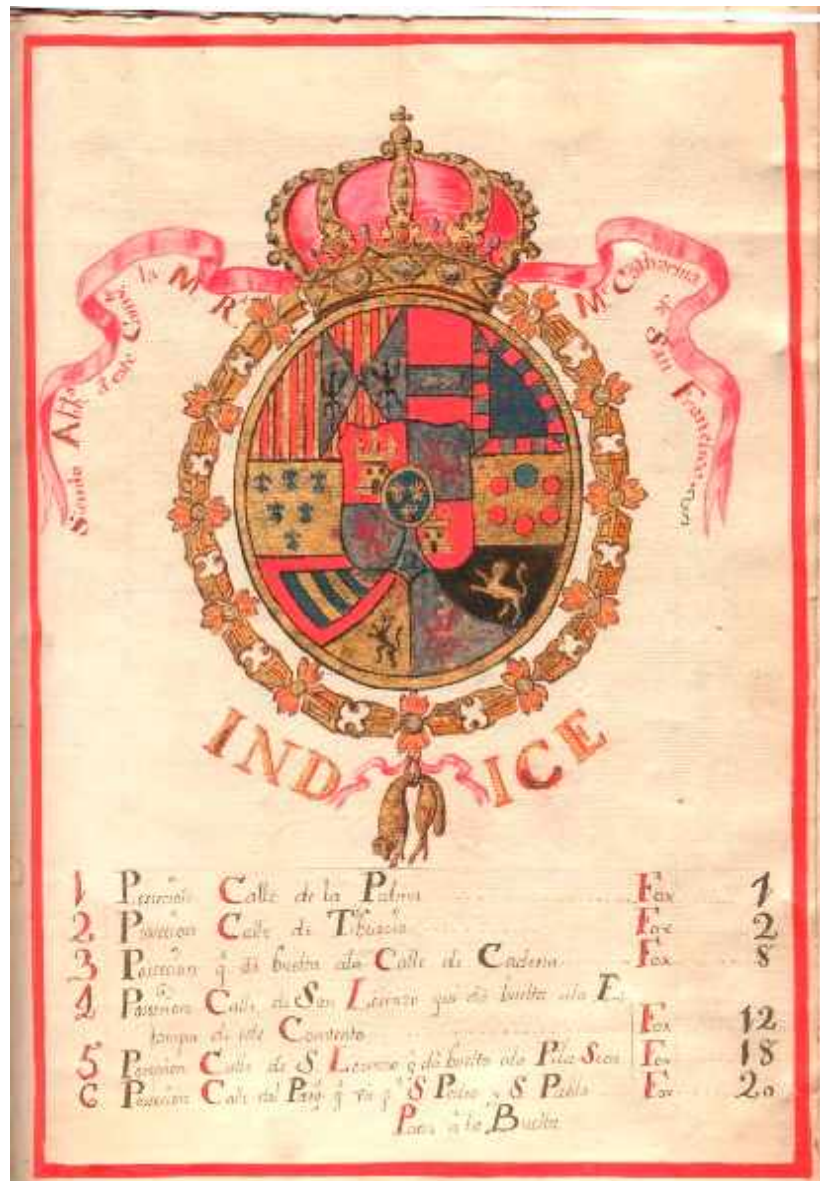 Siendo Abb.ª deste Comb.to la M R.
M.e Catharina de San Francisco
INDICE
1 Posecion Calle de la Palma Fox 1
2 Posecion Calle de Tiburcio Fox 2
3 Posecion q̃ dá buelta ala Calle de Cadena Fox 8
4 Posecion Calle de San Lorenzo que dá buelta ala Es
tampa de este Comvento Fox 12
5 Posecion Calle de S Lorenzo q̃ dá buelta ala Pila Seca Fox 18
6 Posecion Calle del q̃ va S Pedro y S Pablo Fox 20
Pasa à la Buelta